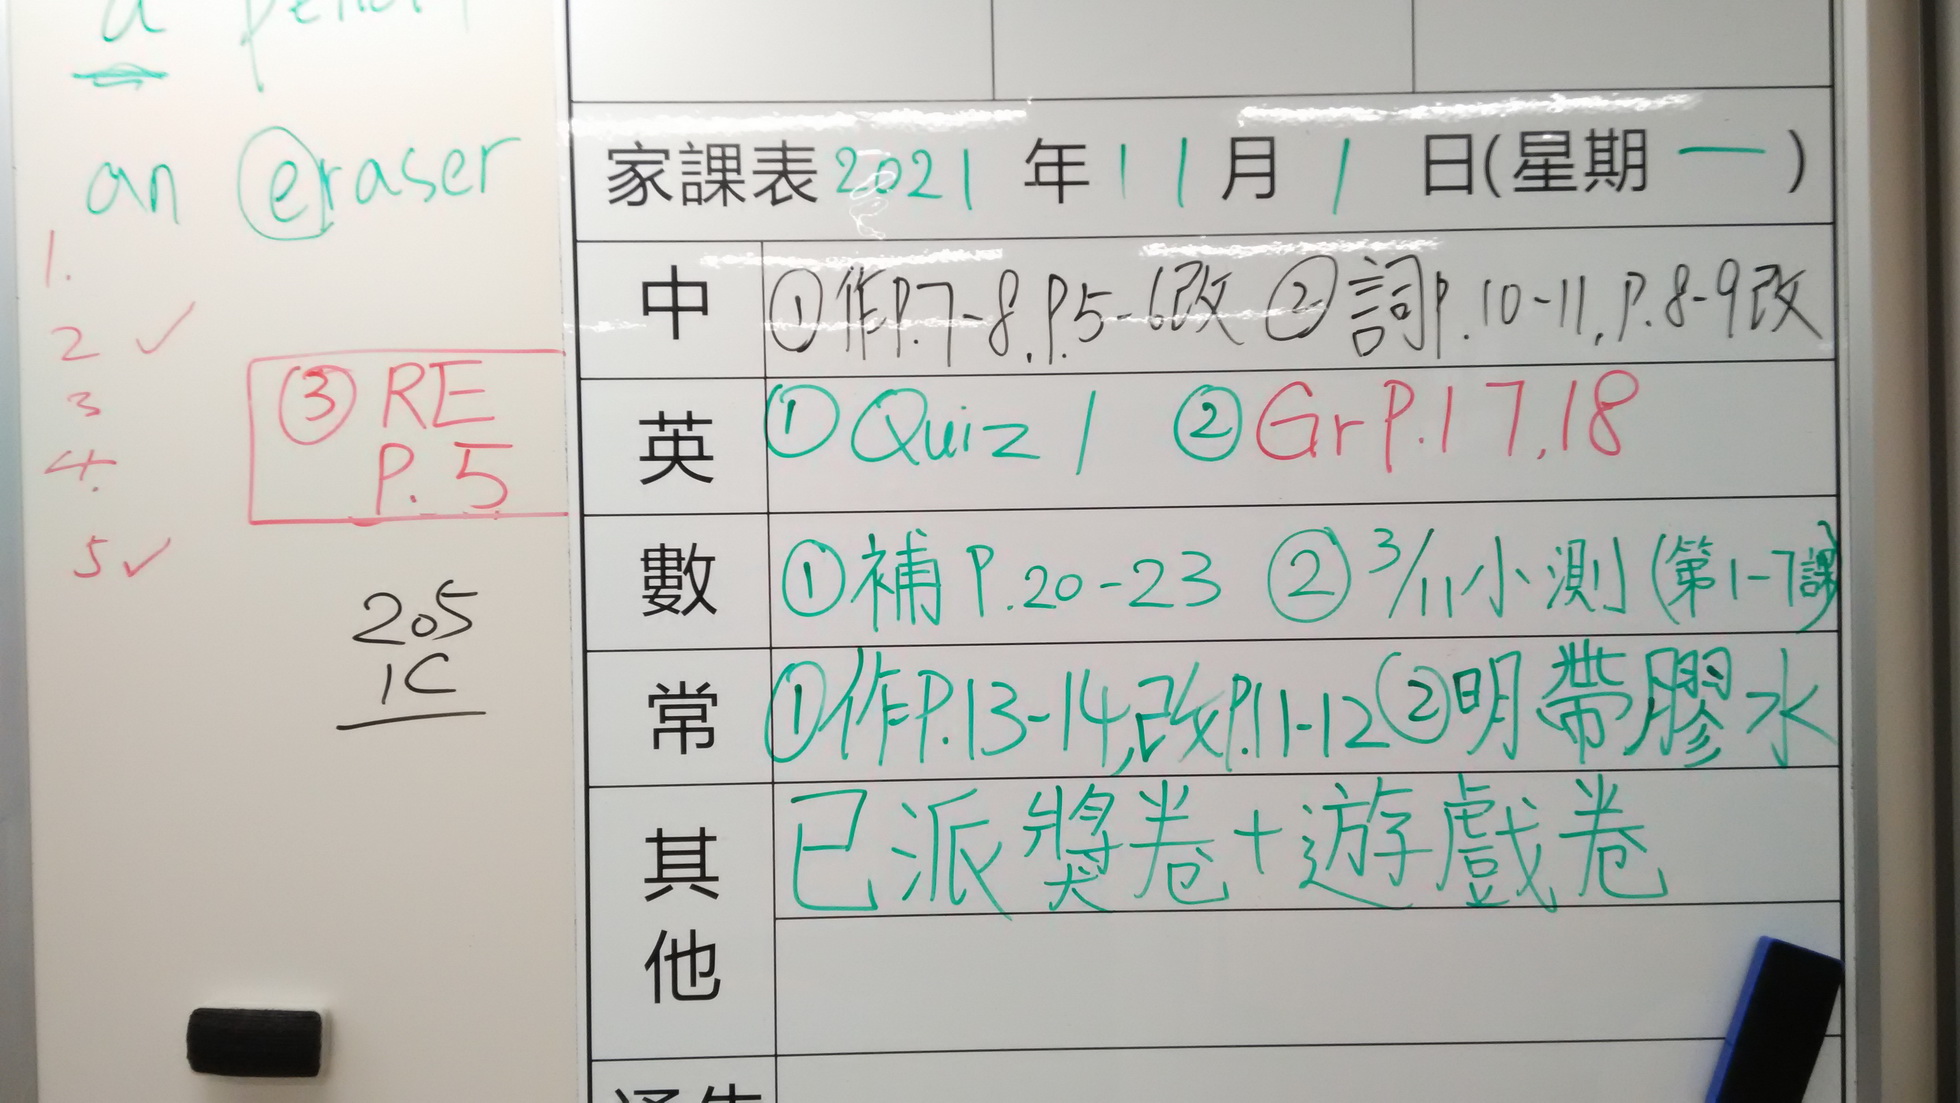 a pencil
an eraser
1.
2 ✓
3
4.
5 ✓
③ RE
P. 5
205
1C
家課表 2021 年 11 月 1 日(星期 一 )
中 ①作P.7-8,P.5-6改 ②詞P.10-11,P.8-9改
英 ①Quiz 1 ②Gr P.17,18
數 ①補P.20-23 ②3/11小測(第1-7課)
常 ①作P.13-14,改P.11-12 ②明帶膠水
其他 已派獎卷+遊戲卷
通告